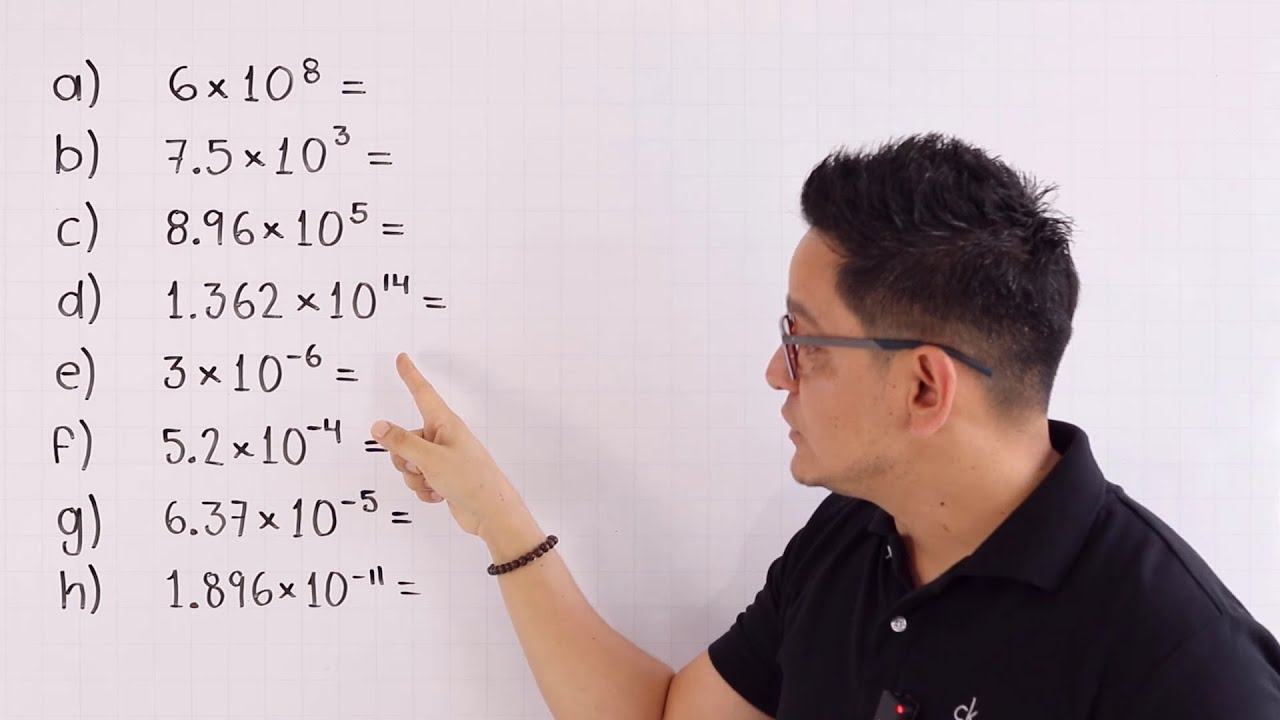 a) 6×10⁸ =
b) 7.5×10³ =
c) 8.96×10⁵ =
d) 1.362×10¹⁴ =
e) 3×10⁻⁶ =
f) 5.2×10⁻⁴ =
g) 6.37×10⁻⁵ =
h) 1.896×10⁻¹¹ =
ck